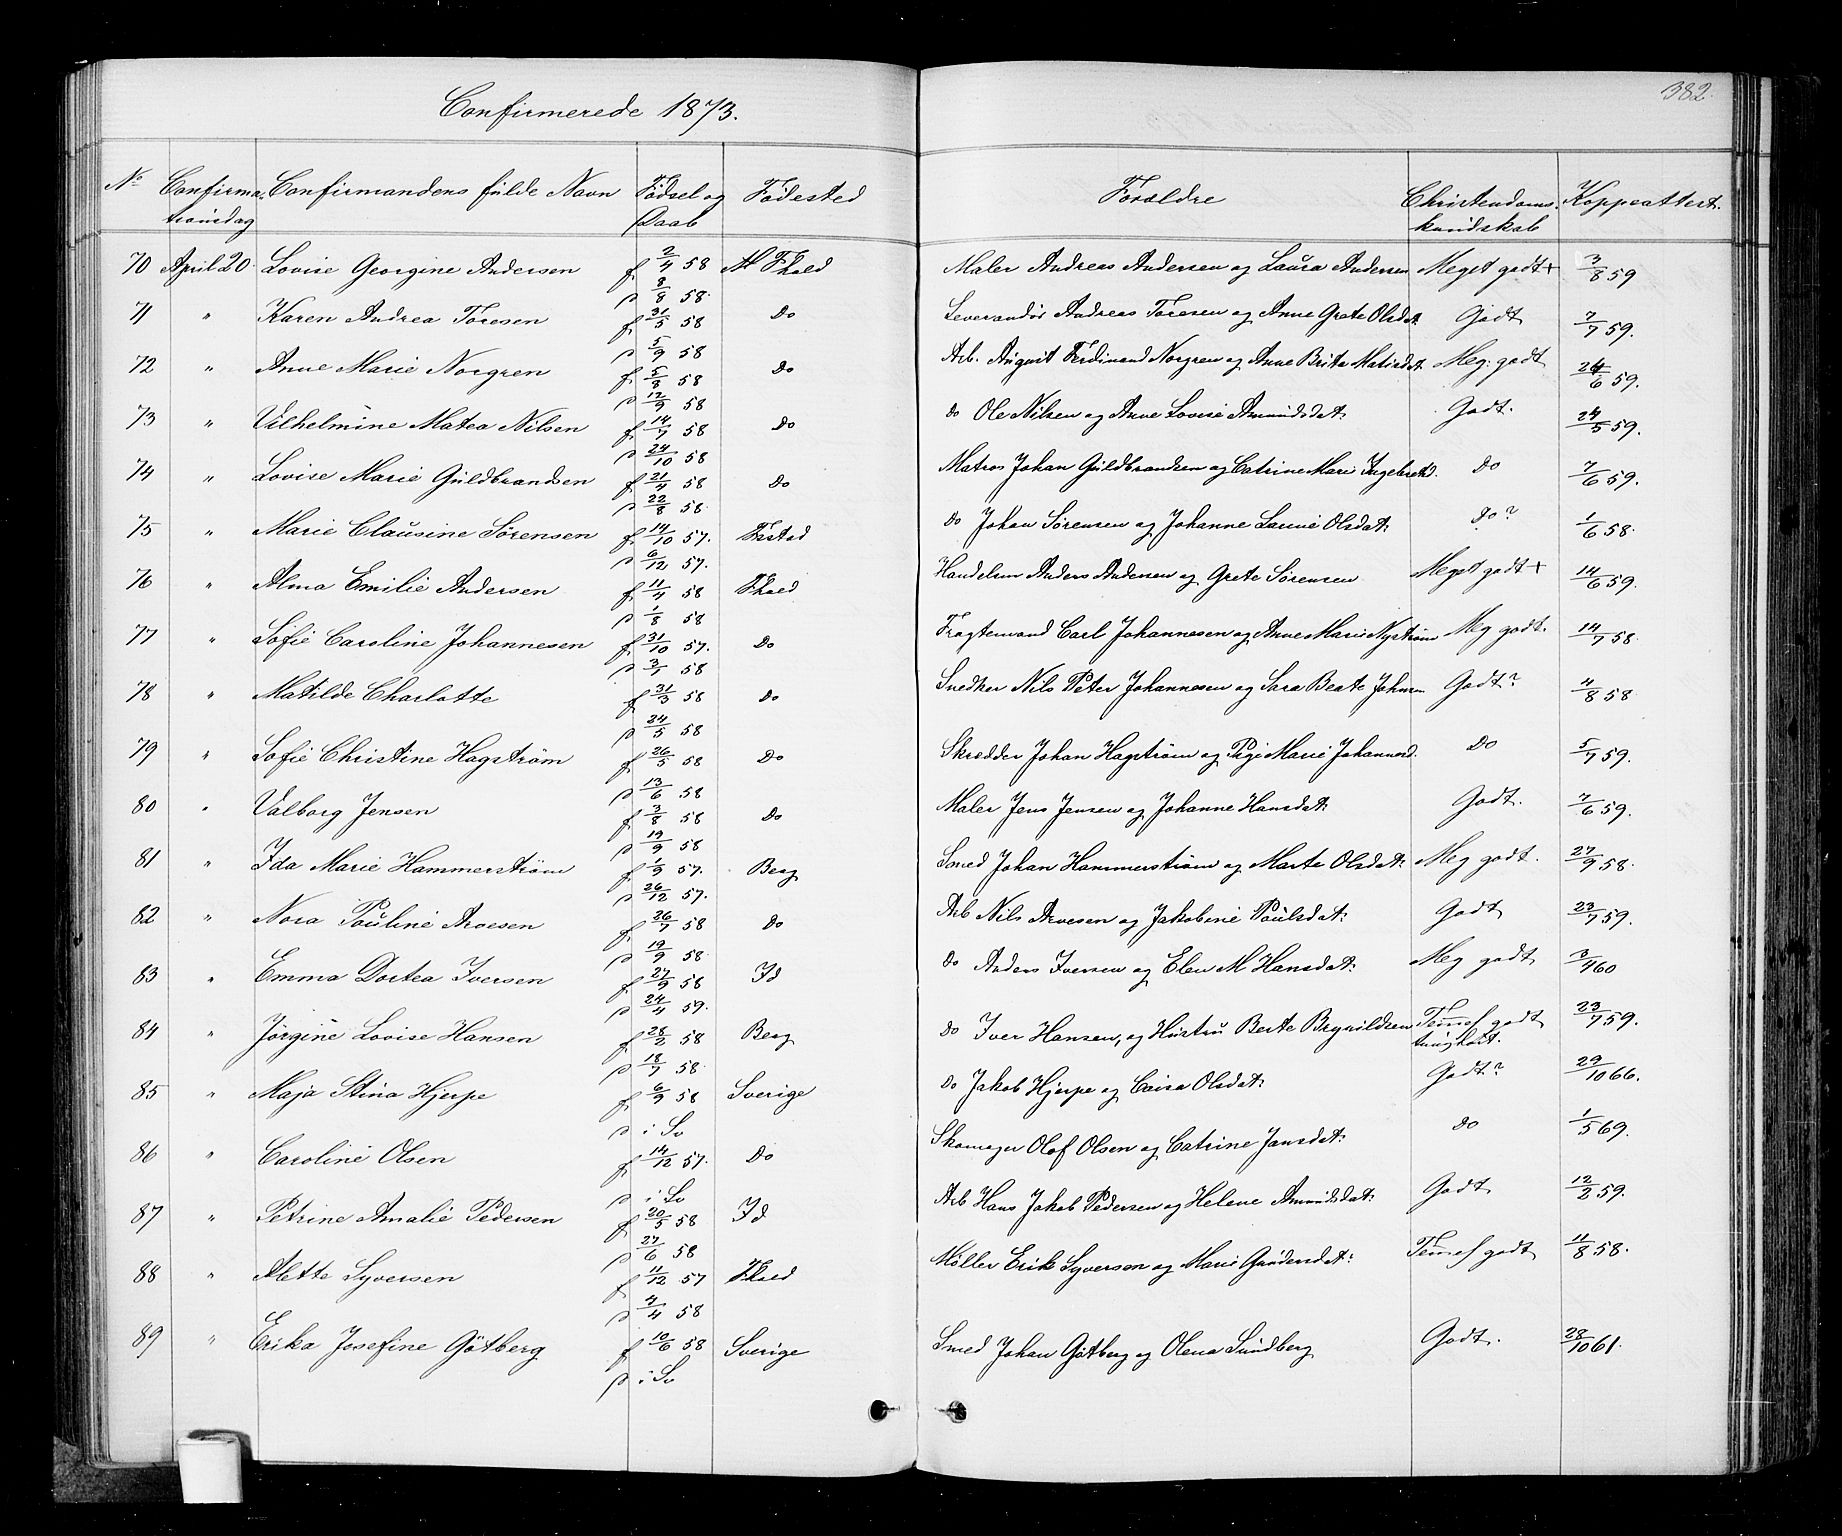 382.
Confirmerede 1873.
No Confirmationsdag Confirmandens fulde Navn Fødsel og Daab Fødested Forældre Christendomskundskab Koppeattest.
70 April 20. Lovise Georgine Andersen f. 2/4 58 Fhald Maler Andreas Andersen og Laura Andersen Meget godt + 3/8 59
d 8/8 58.
71 " Karen Andrea Toresen f. 31/5 58 Do Leverandør Andreas Toresen og Anne Grete Olsdat: Godt 7/7 59.
d 5/9 58
72 " Anne Marie Norgren f. 5/8 58 Do Arb. August Ferdinand Norgren og Anne Brita Matisdat Meg. godt 24/6 59.
d 12/9 58
73 " Vilhelmine Matea Nilsen f. 14/7 58 Do do Ole Nilsen og Anne Lovise Amundsdat: Godt. 24/5 59.
d 24/10 58
74 " Lovise Marie Guldbrandsen f. 21/4 58 Do Matros Johan Guldbrandsen og Catrine Marie Ingebretsd. Do 7/6 59.
d 22/8 58.
75 " Marie Clausine Sørensen f. 14/10 57. Frstad do Johan Sørensen og Johanne Laurine Olsdat: Do? 1/6 58.
d 6/12 57.
76 " Alma Emilie Andersen f. 11/4 58 Fhald Handelsm Anders Andersen og Grete Sørensen Meget godt + 14/6 59.
d 1/8 58
77 " Sofie Caroline Johannesen f. 31/10 57. Do Fragtemand Carl Johannesen og Anne Marie Nystrøm Meg godt. 14/7 58.
d 3/1 58
78 " Matilde Charlotte f. 31/3 58 Do Snedker Nils Peter Johannesen og Sara Beate Johnsen Godt? 4/8 58
d 24/5 58
79 " Sofie Christine Hagstrøm f. 26/5 58 Do Skrædder Johan Hagstrøm og Pige Marie Johannesd. Do 5/7 59.
d 13/6 58
80 " Valborg Jensen f. 3/8 58 Do Maler Jens Jensen og Johanne Hansdat: Godt. 7/6 59.
d 19/9 58
81 " Ida Marie Hammerstrøm f. 1/9 57. Berg Smed Johan Hammerstrøm og Marte Olsdat: Meg godt. 27/9 58.
d 26/12 57.
82 " Nora Pauline Arvesen f. 26/7 58 Do Arb Nils Arvesen og Jakobine Paulsdat: Godt 23/7 59.
d 19/9 58.
83 " Emma Dortea Iversen f. 27/9 58 Id do Anders Iversen og Elen M Hansdat: Meg godt 3/4 60
d 24/4 59.
84 " Jørgine Lovise Hansen f. 28/2 58 Berg do Iver Hansen, og Hustru Berte Brynildsen Temel godt 23/7 59.
d 18/7 58.
85 " Maja Stina Hjerpe f. 6/9 58 Sverige do Jakob Hjerpe og Caisa Olsdat: Godt? 29/10 66.
d i Sv
86 " Caroline Olsen f. 14/12 57. Do Skomager Olof Olsen og Catrine Jansdat: do 1/5 69.
d i Sv
87 " Petrine Amalie Pedersen f. 20/5 58 Id Arb Hans Jakob Pedersen og Helene Amundsdat: Godt 12/2 59.
d 27/6 58
88 " Alette Syversen f. 11/12 57 Fhald Møller Erik Syversen og Marie Gundersdat: Temel godt 11/8 58.
d 4/4 58
89 " Erika Josefine Götberg f. 10/6 58 Sverige Smed Johan Götberg og Olena Sundberg Godt. 28/10 61.
d i Sv